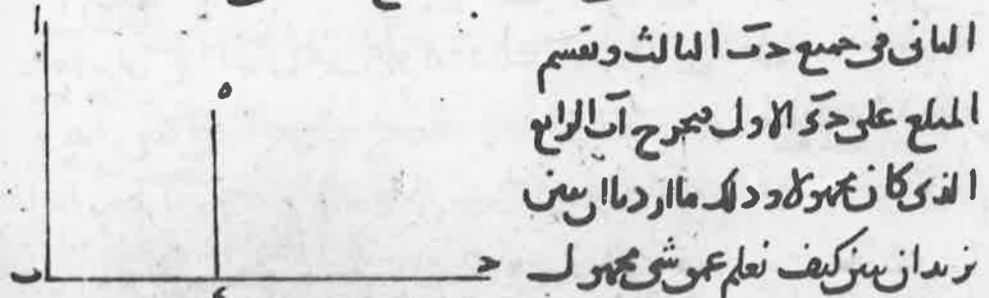 الثانى فى جميع حب الثالث ونقسم
المبلغ على حد الاول فيخرج اب الرابع
الذى كان مجهولا وذلك ما اردنا ان نبين
نريد ان نبين كيف نعلم عمق شى مجهول
ا
ه
ب
ح